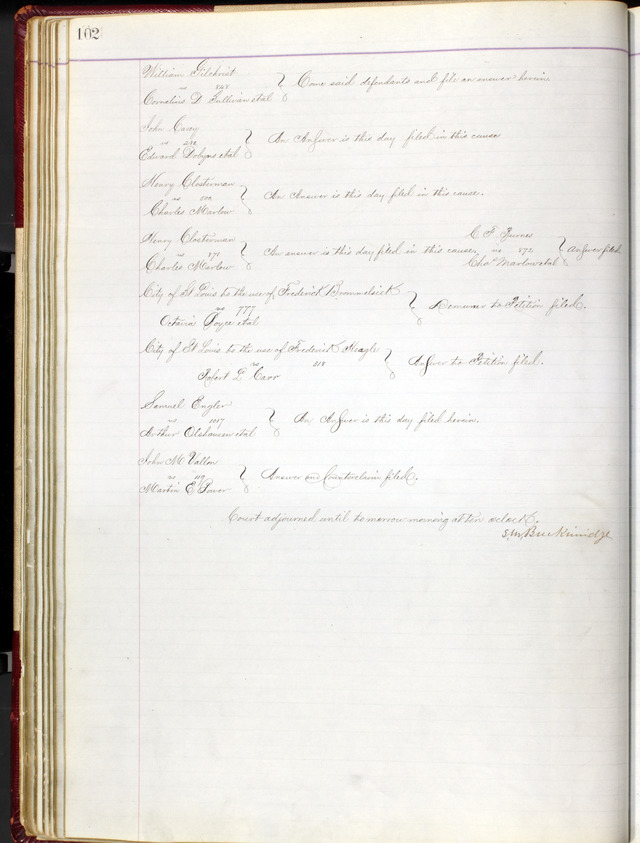 102
William Gilchrist
vs Come said defendants and file an answer herein
Cornelius D Sullivan et al
John Casey
vs 282 An Answer is this day filed in this cause
Edward Dobyns et al
Henry Closterman
vs An Answer is this day filed in this cause.
Charles Marlow
Henry Closterman C F Burnes
vs 871 An answer is this day filed in this cause. vs 872 Answer filed
Charles Marlow Chas Marlow et al
City of St Louis to the use of Frederick Brommelsick
vs 777 Demurrer to Petition filed.
Octavia Joyce et al
City of St Louis to the use of Frederick Heagle
vs 218 Answer to Petition filed.
Robert D Carr
Samuel Engler
vs 1017 An Answer is this day filed herein.
Arthur Olshausen et al
John M Vallon
vs 119 Answer and Counterclaim filed.
Martin E Power
Court adjourned until tomorrow morning at ten oclock.
S.M. Breckinridge